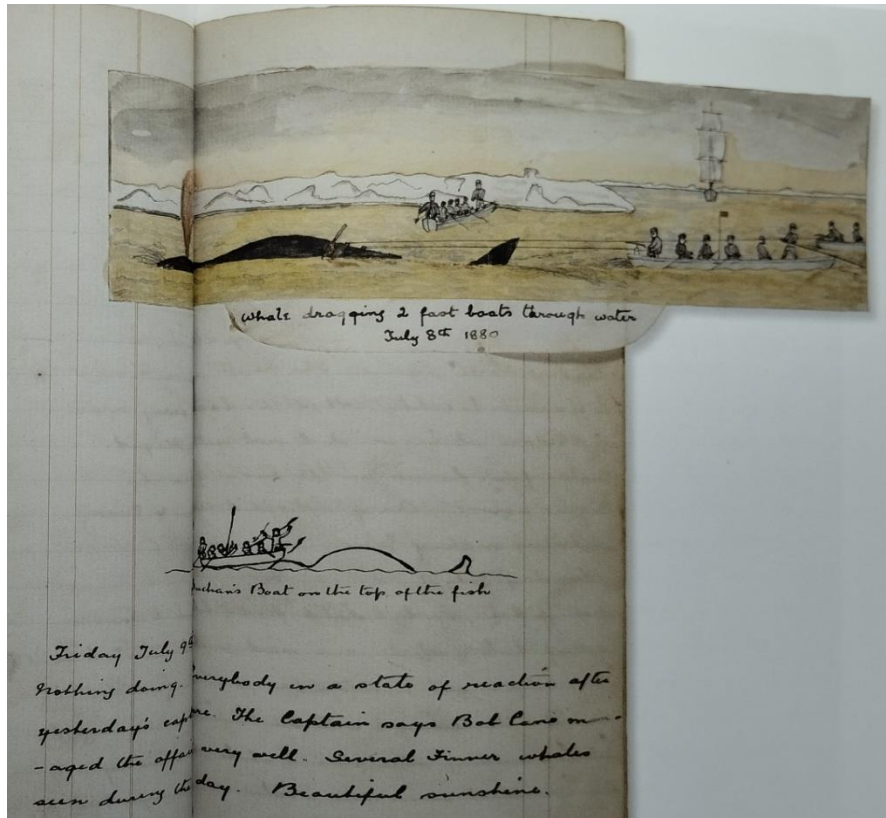 Whale dragging 2 fast boats through water
July 8th 1880
Buchan's Boat on the top of the fish
Friday July 9th
Nothing doing. Everybody in a state of reaction after
yesterday's capture. The Captain says Bob Cane man-
-aged the affair very well. Several Finner whales
seen during the day. Beautiful sunshine.